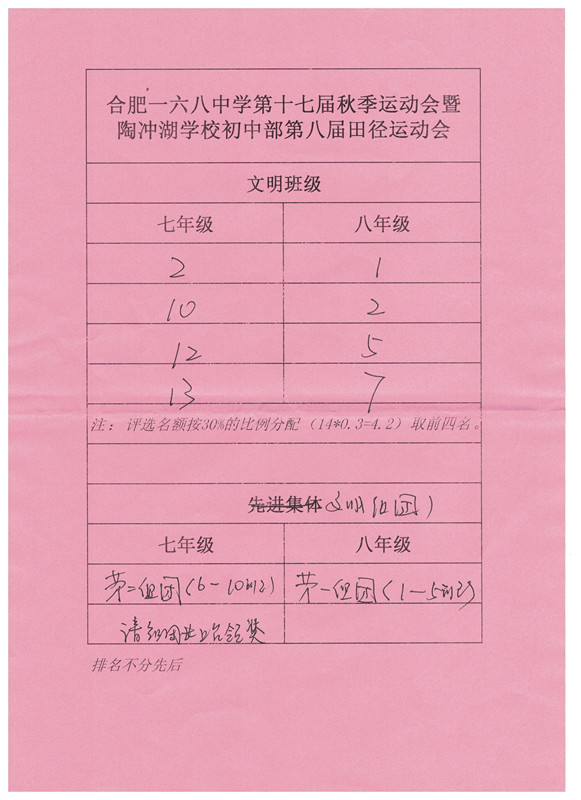 合肥一六八中学第十七届秋季运动会暨
陶冲湖学校初中部第八届田径运动会
文明班级
七年级 八年级
2 1
10 2
12 5
13 7
注：评选名额按30%的比例分配（14*0.3=4.2）取前四名。
先进集体 文明组团）
七年级 八年级
第二组团(6-10班) 第一组团(1-5班)
请组团上台领奖
排名不分先后